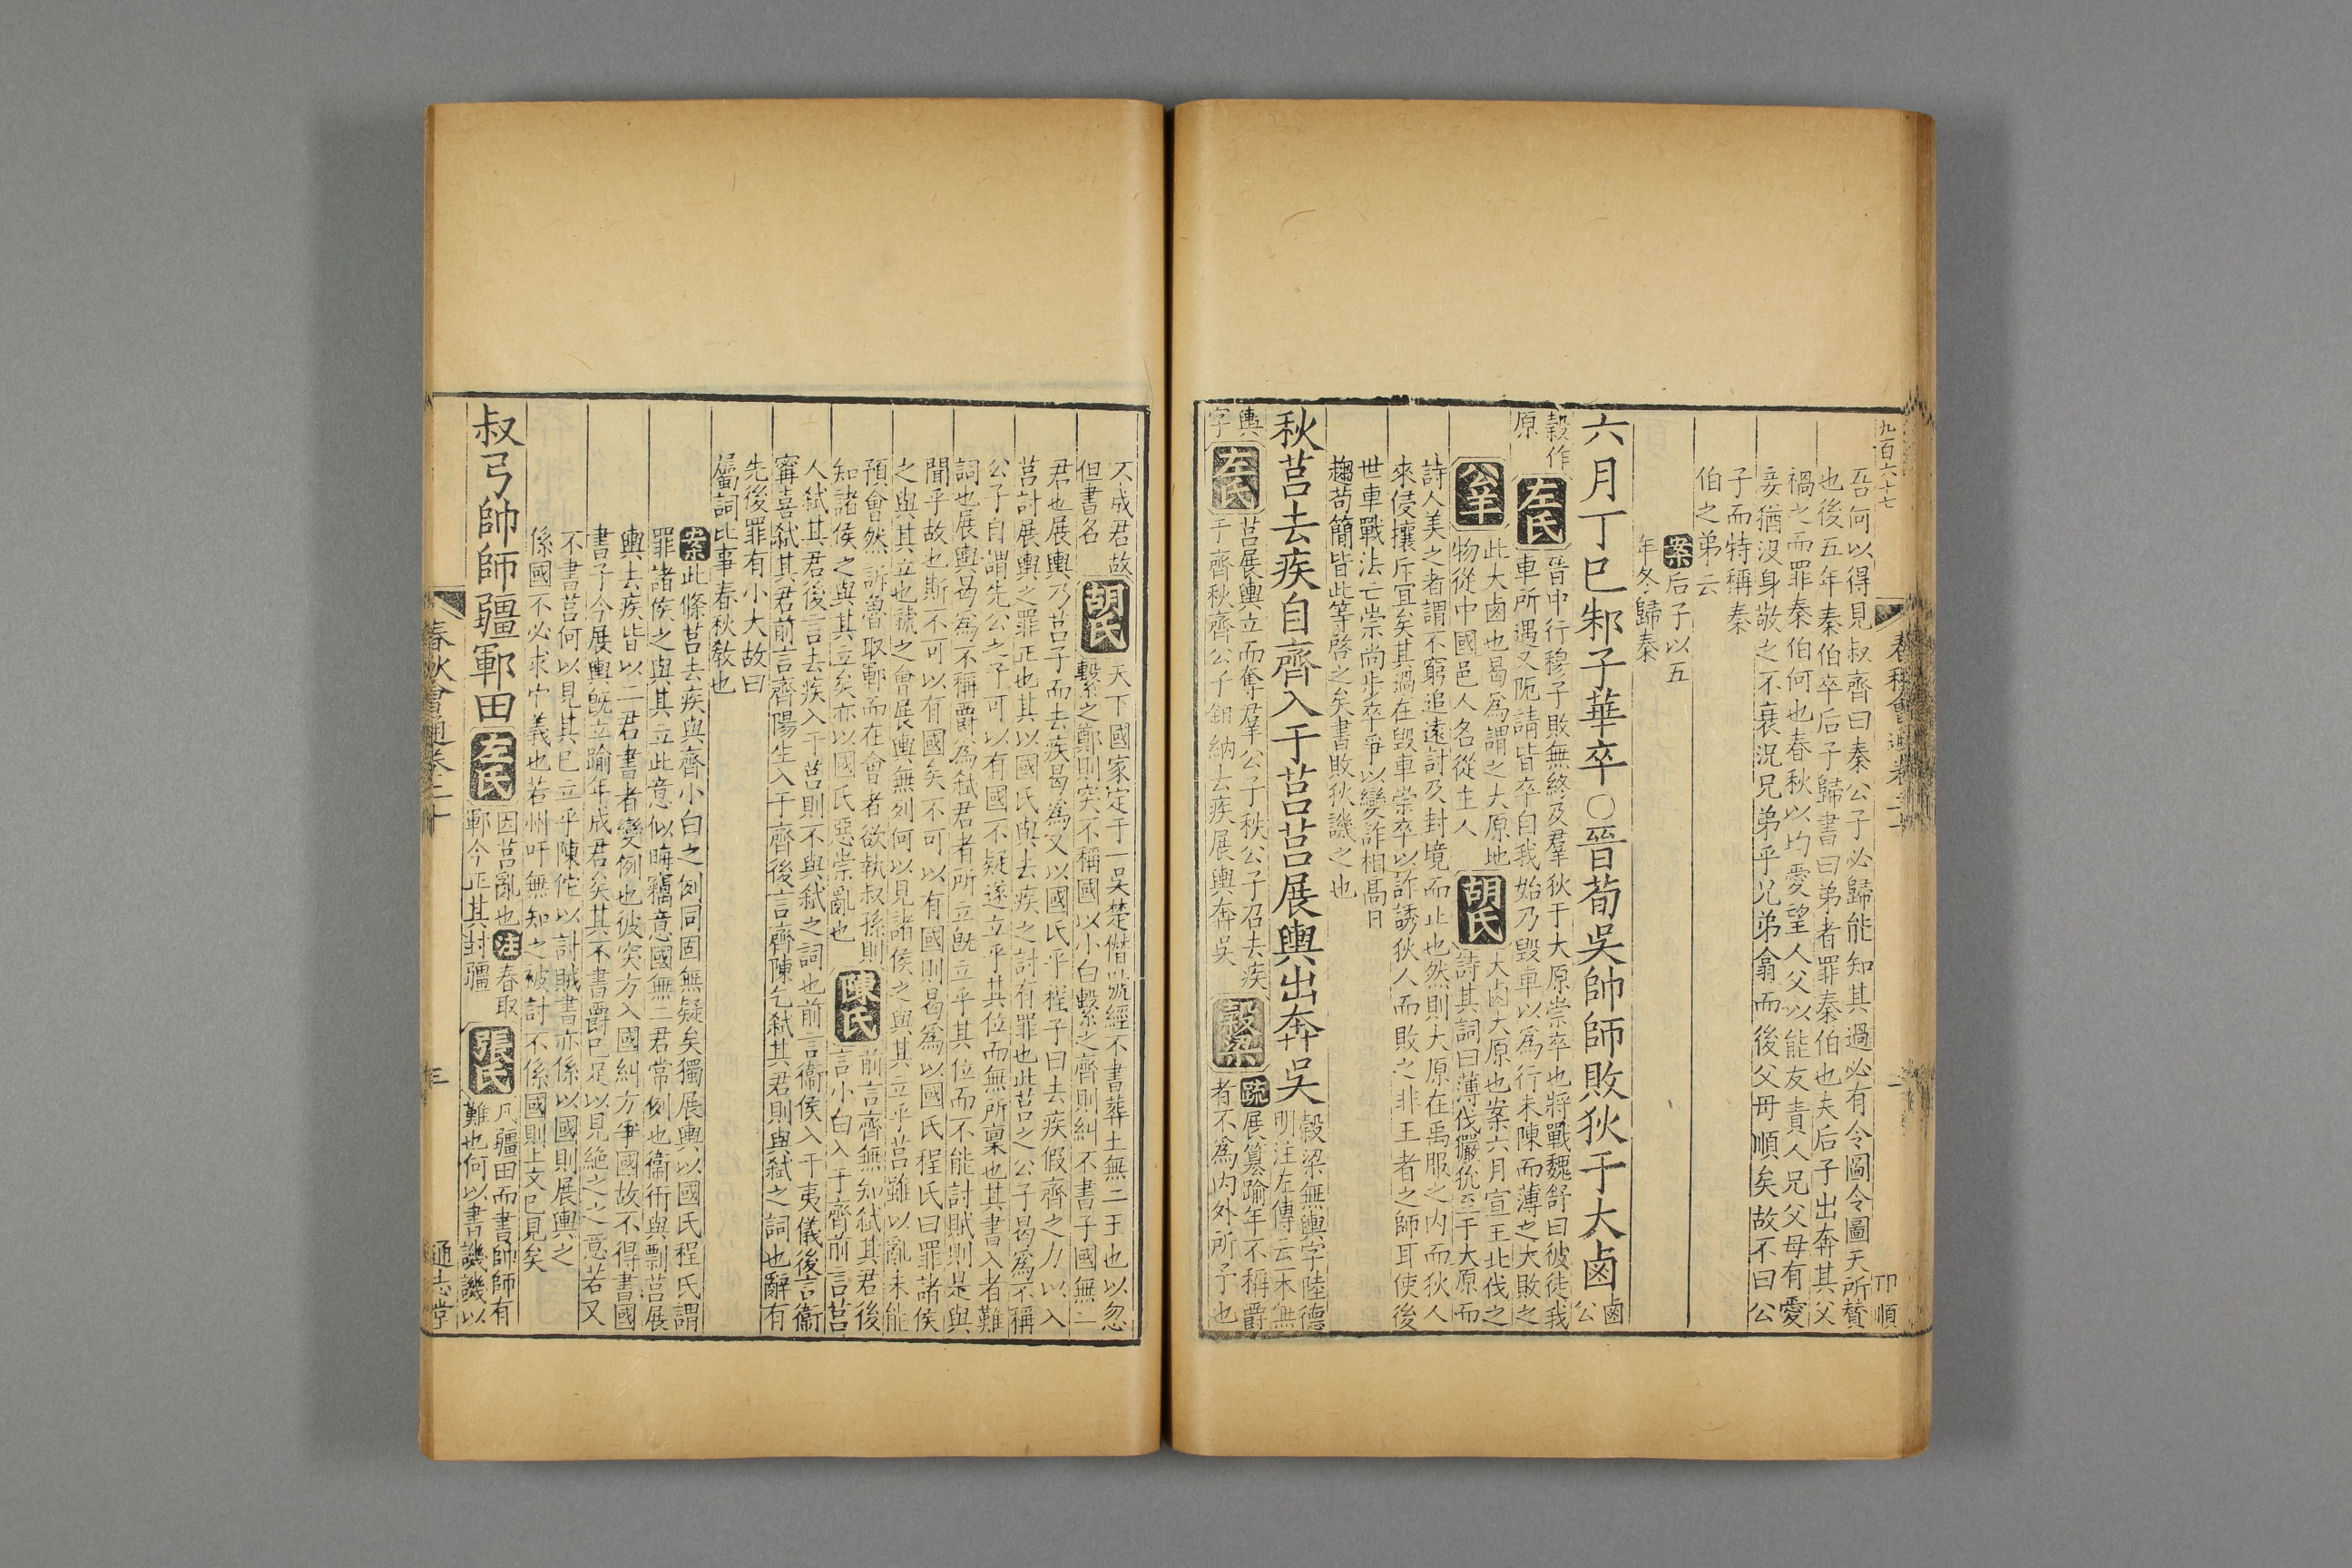 九百六十七
春秋會通卷二十
卬順
吾何以得見叔齊曰秦公子必歸能知其過必有令圖令圖天所賛
也後五年秦伯卒后子歸書曰弟者罪秦伯也夫后子出奔其父
禍之而罪秦伯何也春秋以均愛望人父以能友責人兄父母有愛
妾猶沒身敬之不衰況兄弟乎兄弟翕而後父母順矣故不曰公
子而特稱秦
伯之弟云
案后子以五
年冬歸秦
六月丁巳邾子華卒○晉荀吳帥師敗狄于大鹵
鹵公
穀作
原
左氏
晉中行穆子敗無終及羣狄于大原崇卒也將戰魏舒曰彼徒我
車所遇又阨請皆卒自我始乃毀車以爲行未陳而薄之大敗之
公羊
此大鹵也曷爲謂之大原地
物從中國邑人名從主人
胡氏
大鹵大原也案六月宣王北伐之
詩其詞曰薄伐玁狁至于大原而
詩人美之者謂不窮追遠討及封境而止也然則大原在禹服之内而狄人
來侵攘斥宜矣其過在毀車崇卒以詐誘狄人而敗之非王者之師耳使後
世車戰法亡崇尚步卒爭以變詐相高日
趨苟簡皆此等啓之矣書敗狄譏之也
秋莒去疾自齊入于莒莒展輿出奔吳
穀梁無輿字陸德
明注左傳云一本無
輿
字
左氏
莒展輿立而奪羣公子秩公子召去疾
于齊秋齊公子鉏納去疾展輿奔吳
穀梁
疏展簒踰年不稱爵
者不爲内外所予也
不成君故
但書名
胡氏
天下國家定于一吳楚僭號經不書葬土無二王也以忽
繫之鄭則突不稱國以小白繫之齊則糾不書子國無二
君也展輿乃莒子而去疾曷爲又以國氏乎程子曰去疾假齊之力以入
莒討展輿之罪正也其以國氏與去疾之討有罪也此莒之公子曷爲不稱
公子自謂先公之子可以有國不疑遂立乎其位而無所稟也其書入者難
詞也展輿曷爲不稱爵爲弑君者所立旣立乎其位而不能討賊則是與
聞乎故也斯不可以有國矣不可以有國則曷爲以國氏程氏曰罪諸侯
之與其立也虢之會展輿無列何以見諸侯之與其立乎莒雖以亂未能
預會然訴魯取鄆而在會者欲執叔孫則
知諸侯之與其立矣亦以國氏惡崇亂也
陳氏
前言齊無知弑其君後
言小白入于齊前言莒
人弑其君後言去疾入于莒則不與弑之詞也前言衞侯入于夷儀後言衞
甯喜弑其君前言齊陽生入于齊後言齊陳乞弑其君則與弑之詞也辭有
先後罪有小大故曰
屬詞比事春秋敎也
案此條莒去疾與齊小白之例同固無疑矣獨展輿以國氏程氏謂
罪諸侯之與其立此意似晦竊意國無二君常例也衞術與剽莒展
輿去疾皆以二君書者變例也彼突方入國糾方爭國故不得書國
書子今展輿旣立踰年成君矣其不書爵已足以見絶之之意若又
不書莒何以見其已立乎陳佗以討賊書亦係以國則展輿之
係國不必求中義也若州吁無知之被討不係國則上文已見矣
叔弓帥師疆鄆田
左氏
因莒亂也注春取
鄆今正其封疆
張氏
凡疆田而書帥師有
難也何以書譏譏以
春秋會通卷二十
三
通志堂